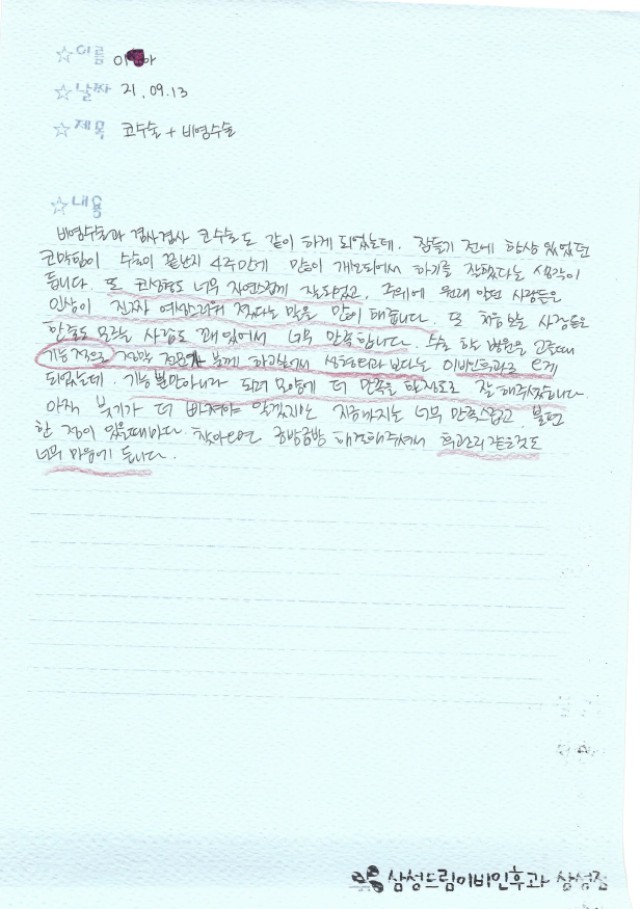 ☆이름 이 아
☆날짜 21.09.13
☆제목 코수술 + 비염수술
☆내용
비염수술과 겸사겸사 코수술도 같이 하게 되었는데. 잠들기 전에 항상 있었던
코막힘이 수술이 끝난지 4주만에 많이 개선되어서 하기를 잘했다는 생각이
듭니다. 또 코성형도 너무 자연스럽게 잘되었고, 주위에 원래 알던 사람들은
인상이 진짜 여성스러워 졌다는 말을 많이 해줍니다. 또 처음 보는 사람들은
한줄도 모르는 사람도 꽤 있어서 너무 만족합니다. 수술 할 병원을 고를때
기능적으로 정말 전문 하고싶어서 성형외과 보다는 이비인후과로 오게
되었는데. 기능 뿐만아니라 되려 모양에 더 만족을 할정도로 잘 해주셨습니다
아직 붓기가 더 빠져야 알겠지만 지금까지는 너무 만족스럽고, 불편
한 점이 있을때마다. 찾아오면 금방금방 해결해주셔서 학고 같은것도
너무 마음에 듭니다.
삼성드림이비인후과 삼성점